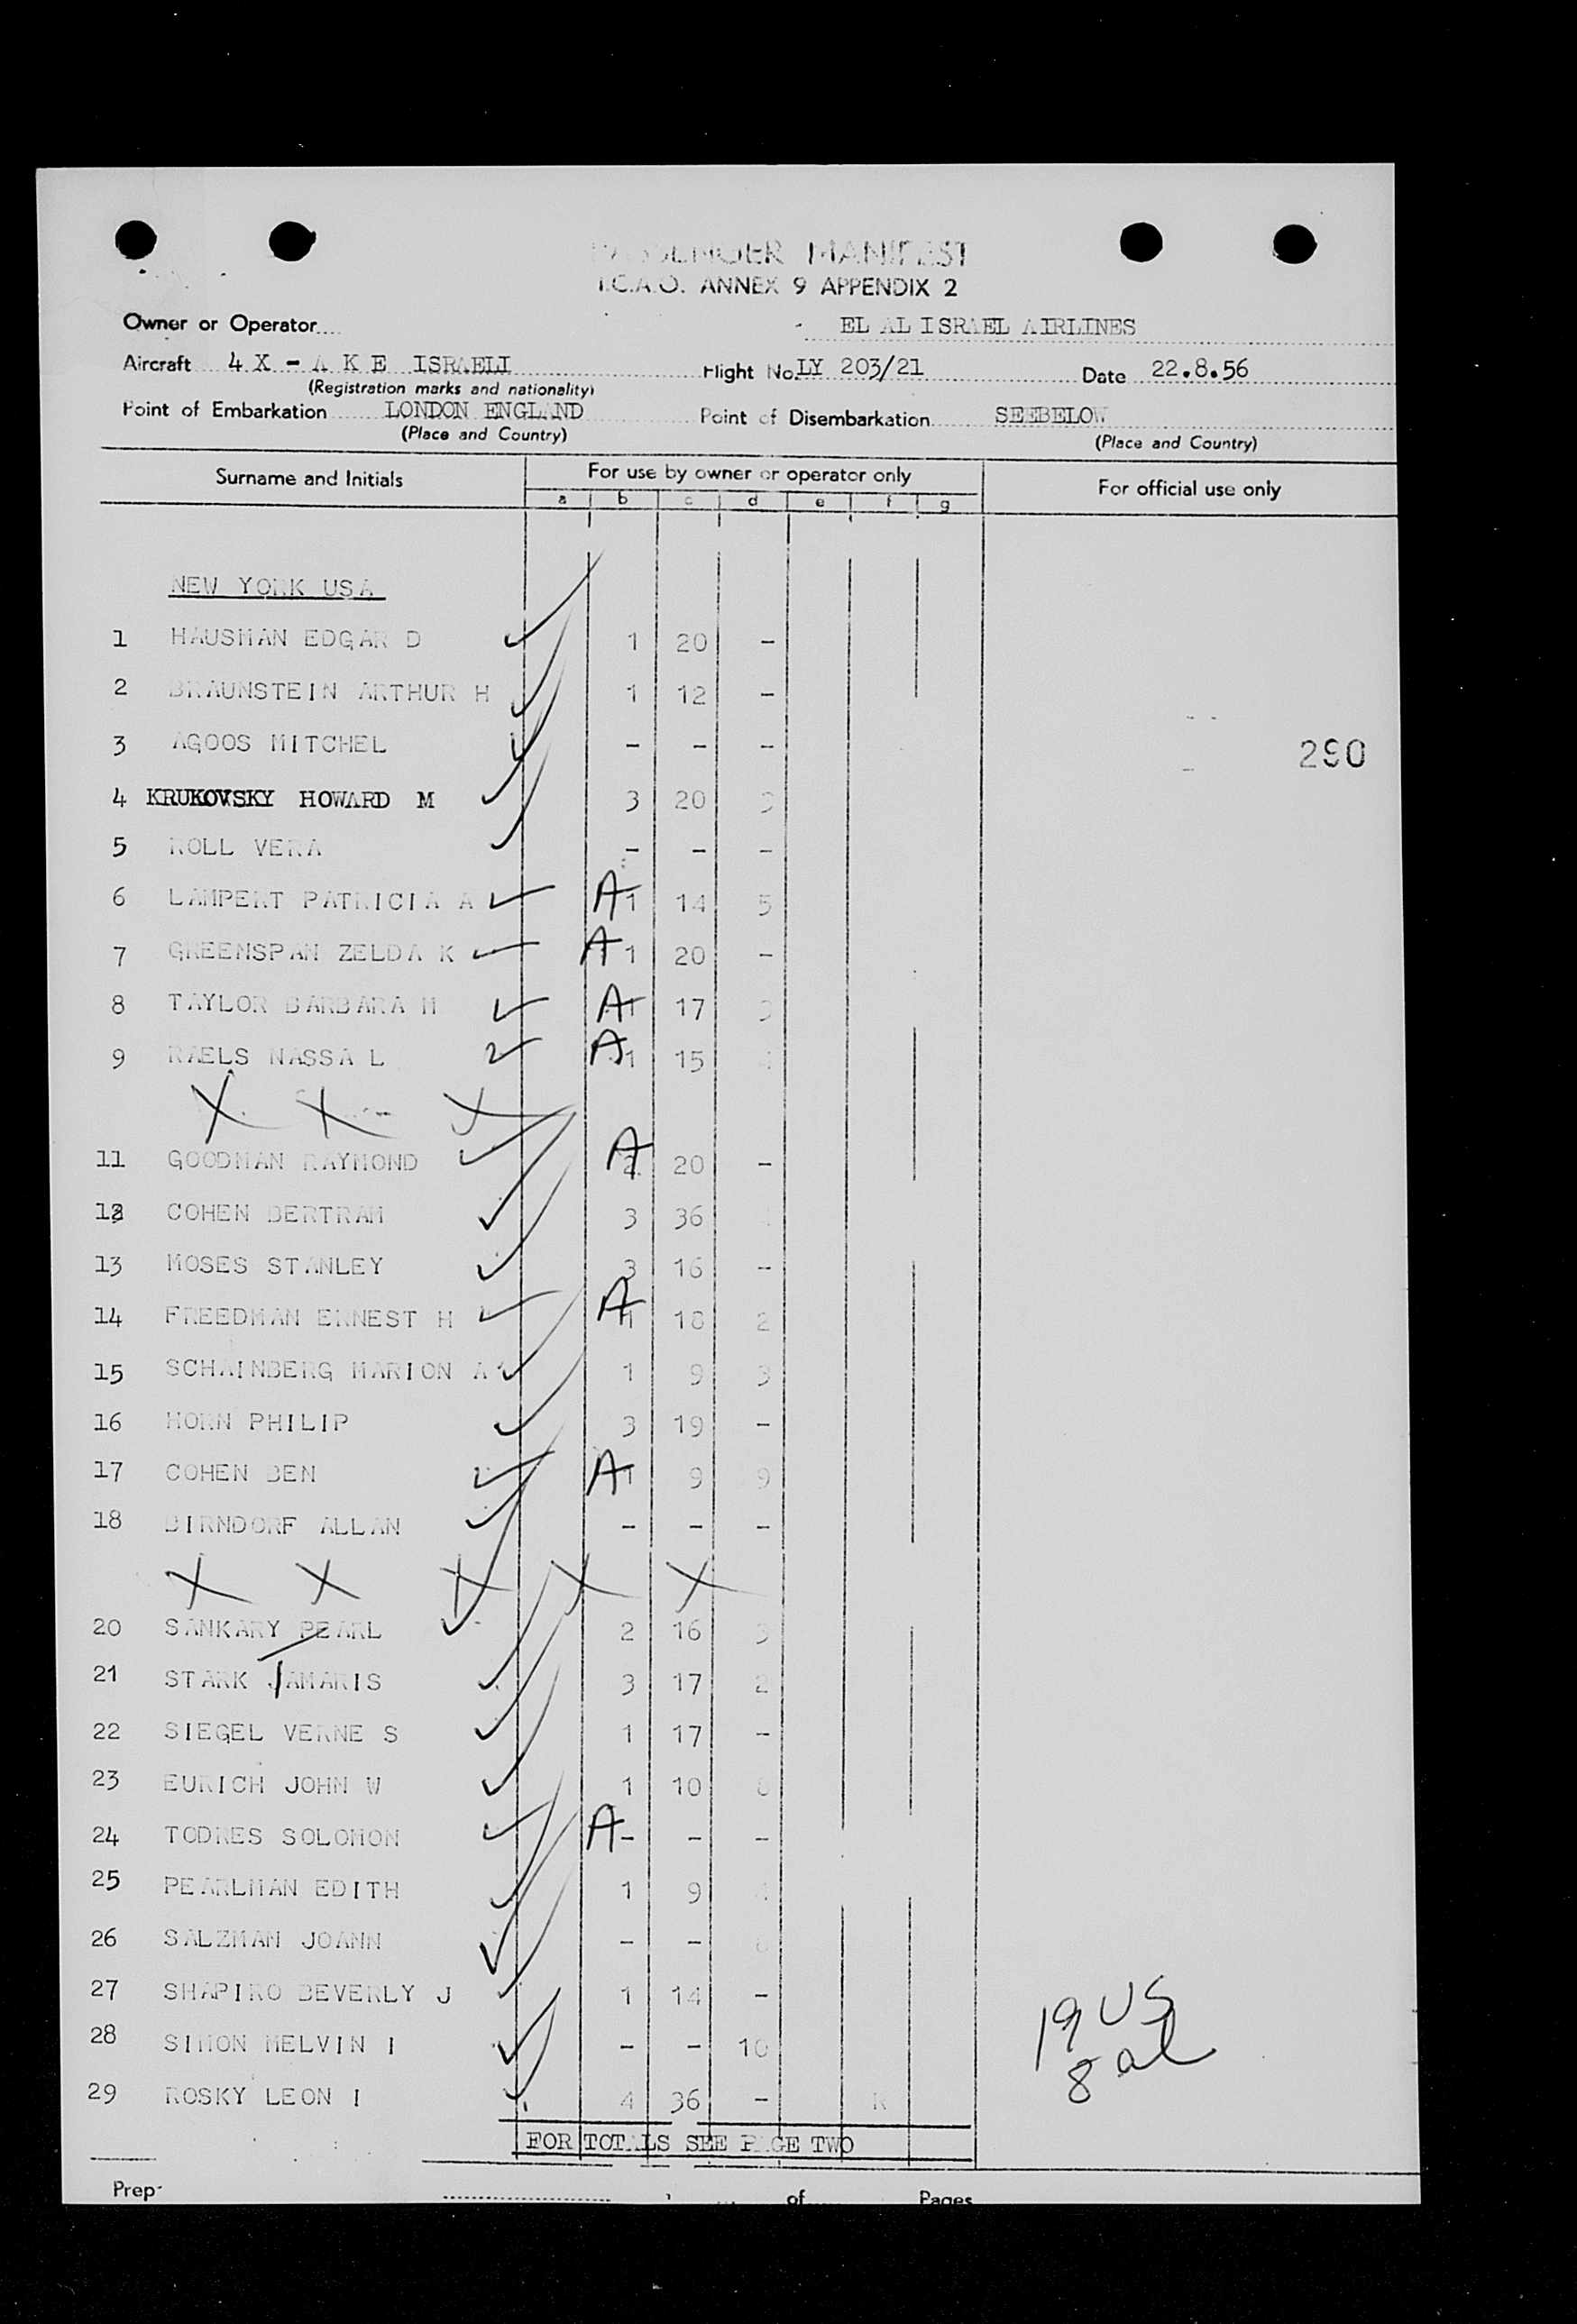 PASSENGER MANIFEST
I.C.A.O. ANNEX 9 APPENDIX 2
Owner or Operator EL AL ISRAEL AIRLINES
Aircraft 4 X - A K E ISRAELI Flight No. LY 203/21 Date 22.8.56
(Registration marks and nationality)
Point of Embarkation LONDON ENGLAND Point of Disembarkation SEEBELOW
(Place and Country) (Place and Country)
Surname and Initials For use by owner or operator only For official use only
a b c d e f g
NEW YORK USA
1 HAUSMAN EDGAR D 1 20 -
2 BRAUNSTEIN ARTHUR H 1 12 -
3 AGOOS MITCHEL - - -
290
4 KRUKOVSKY HOWARD M 3 20 3
5 ROLL VERA - - -
6 LAMPERT PATRICIA A A 1 14 5
7 GREENSPAN ZELDA K A 1 20 -
8 TAYLOR BARBARA M A 1 17 3
9 RAELS NASSA L A 1 15
X X X
11 GOODMAN RAYMOND A 2 20 -
12 COHEN BERTRAM 3 36
13 MOSES STANLEY 3 16 -
14 FREEDMAN ERNEST H A 1 18 2
15 SCHAINBERG MARION A 1 9 3
16 HORN PHILIP 3 19 -
17 COHEN BEN A 1 9 9
18 BIRNDORF ALLAN - - -
X X X X X
20 SANKARY PEARL 2 16 3
21 STARK JAMARIS 3 17 2
22 SIEGEL VERNE S 1 17 -
23 EURICH JOHN W 1 10
24 TODRES SOLOMON A - - -
25 PEARLMAN EDITH 1 9 4
26 SALZMAN JOANN - -
27 SHAPIRO BEVERLY J 1 14 -
19 US
28 SIMON MELVIN I - - 10
8 al
29 ROSKY LEON I 4 36 - R
FOR TOTALS SEE PAGE TWO
Prep of Pages